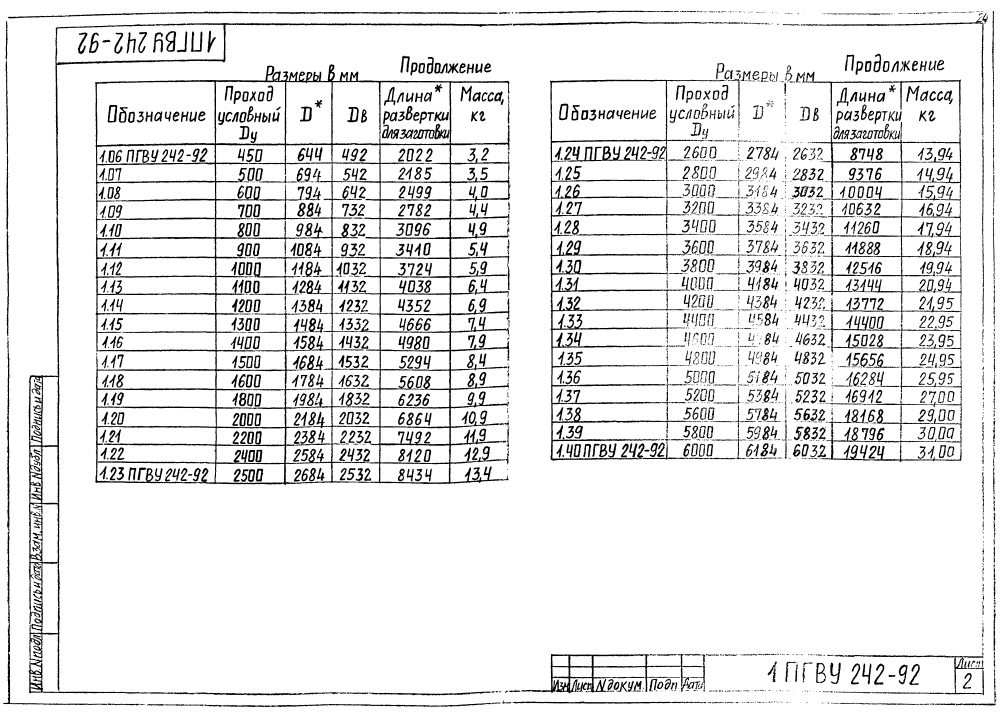 24
1 ПГВУ 242-92
Размеры в мм Продолжение
Обозначение Проход условный Dу D* Dв Длина* развертки для заготовки Масса, кг
1.06 ПГВУ 242-92 450 644 492 2022 3,2
1.07 500 694 542 2185 3,5
1.08 600 794 642 2499 4,0
1.09 700 884 732 2782 4,4
1.10 800 984 832 3096 4,9
1.11 900 1084 932 3410 5,4
1.12 1000 1184 1032 3724 5,9
1.13 1100 1284 1132 4038 6,4
1.14 1200 1384 1232 4352 6,9
1.15 1300 1484 1332 4666 7,4
1.16 1400 1584 1432 4980 7,9
1.17 1500 1684 1532 5294 8,4
1.18 1600 1784 1632 5608 8,9
1.19 1800 1984 1832 6236 9,9
1.20 2000 2184 2032 6864 10,9
1.21 2200 2384 2232 7492 11,9
1.22 2400 2584 2432 8120 12,9
1.23 ПГВУ 242-92 2500 2684 2532 8434 13,4
Размеры в мм Продолжение
Обозначение Проход условный Dу D* Dв Длина* развертки для заготовки Масса, кг
1.24 ПГВУ 242-92 2600 2784 2632 8748 13,94
1.25 2800 2984 2832 9376 14,94
1.26 3000 3184 3032 10004 15,94
1.27 3200 3384 3232 10632 16,94
1.28 3400 3584 3432 11260 17,94
1.29 3600 3784 3632 11888 18,94
1.30 3800 3984 3832 12516 19,94
1.31 4000 4184 4032 13144 20,94
1.32 4200 4384 4232 13772 21,95
1.33 4400 4584 4432 14400 22,95
1.34 4600 4784 4632 15028 23,95
1.35 4800 4984 4832 15656 24,95
1.36 5000 5184 5032 16284 25,95
1.37 5200 5384 5232 16912 27,00
1.38 5600 5784 5632 18168 29,00
1.39 5800 5984 5832 18796 30,00
1.40 ПГВУ 242-92 6000 6184 6032 19424 31,00
Инв. N подл. Подпись и дата Взам. инв. N Инв. N дубл. Подпись и дата
Изм Лист N докум. Подп Дата
1 ПГВУ 242-92
Лист
2